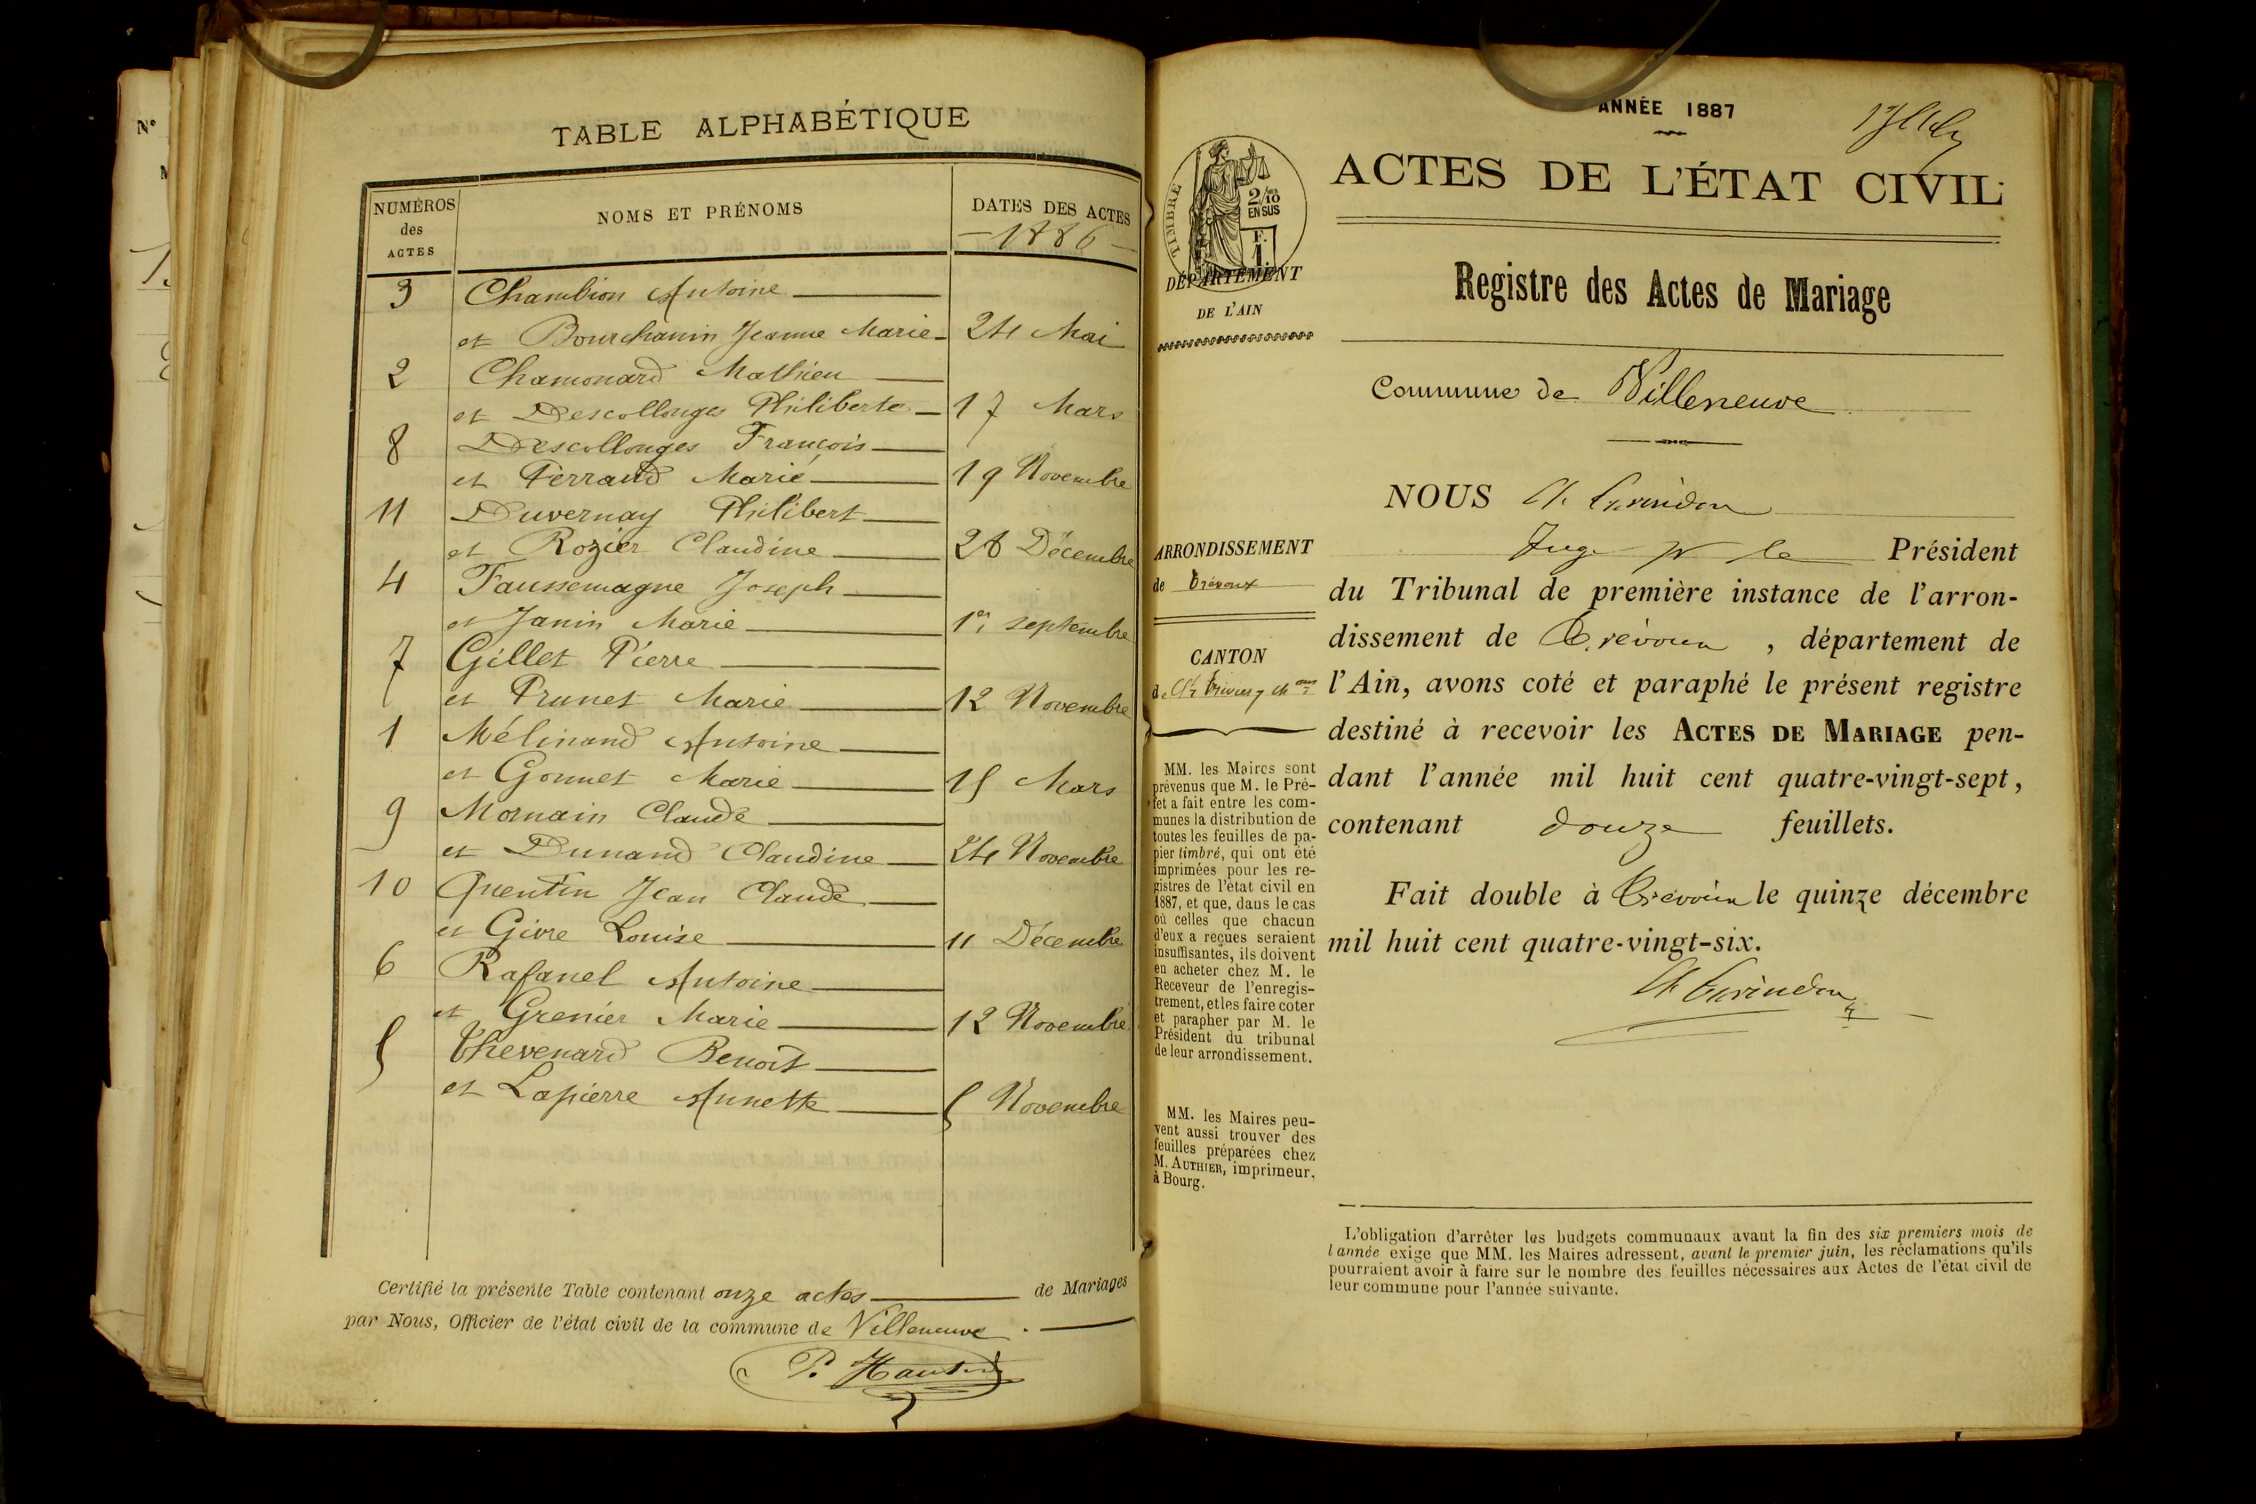 TABLE ALPHABÉTIQUE
NUMÉROS des ACTES
NOMS ET PRÉNOMS
DATES DES ACTES
— 1886 —
3 Chambion Antoine
et Bourchanin Jeanne Marie 24 Mai
2 Chamonard Mathieu
et Descollonges Philiberte 17 Mars
8 Descollonges François
et Ferraud Marie 19 Novembre
11 Duvernay Philibert
et Rozier Claudine 28 Décembre
4 Faussemagne Joseph
et Janin Marie 1er septembre
7 Gillet Pierre
et Prunet Marie 12 Novembre
1 Mélinand Antoine
et Gonnet Marie 15 Mars
9 Mornain Claude
et Dunand Claudine 24 Novembre
10 Quentin Jean Claude
et Givre Louise 11 Décembre
6 Rafanel Antoine
et Grenier Marie 12 Novembre
5 Thevenard Benoît
et Lapierre Annette 5 Novembre
Certifié la présente Table contenant onze actes de Mariages
par Nous, Officier de l'état civil de la commune de Villeneuve.
N°
TIMBRE
2/10
EN SUS
F.
1.
DÉPARTEMENT
DE L'AIN
ARRONDISSEMENT
de Trévoux
CANTON
de St Trivier
MM. les Maires sont
prévenus que M. le Pré-
fet a fait entre les com-
munes la distribution de
toutes les feuilles de pa-
pier timbré, qui ont été
imprimées pour les re-
gistres de l'état civil en
1887, et que, dans le cas
où celles que chacun
d'eux a reçues seraient
insuffisantes, ils doivent
en acheter chez M. le
Receveur de l'enregis-
trement, et les faire coter
et parapher par M. le
Président du tribunal
de leur arrondissement.
MM. les Maires peu-
vent aussi trouver des
feuilles préparées chez
M. AUTHIER, imprimeur,
à Bourg.
ANNÉE 1887
ACTES DE L'ÉTAT CIVIL
Registre des Actes de Mariage
Commune de Villeneuve
NOUS
Juge pr le Président
du Tribunal de première instance de l'arron-
dissement de Trévoux, département de
l'Ain, avons coté et paraphé le présent registre
destiné à recevoir les ACTES DE MARIAGE pen-
dant l'année mil huit cent quatre-vingt-sept,
contenant douze feuillets.
Fait double à Trévoux le quinze décembre
mil huit cent quatre-vingt-six.
L'obligation d'arrêter les budgets communaux avant la fin des six premiers mois de
l'année exige que MM. les Maires adressent, avant le premier juin, les réclamations qu'ils
pourraient avoir à faire sur le nombre des feuilles nécessaires aux Actes de l'état civil de
leur commune pour l'année suivante.